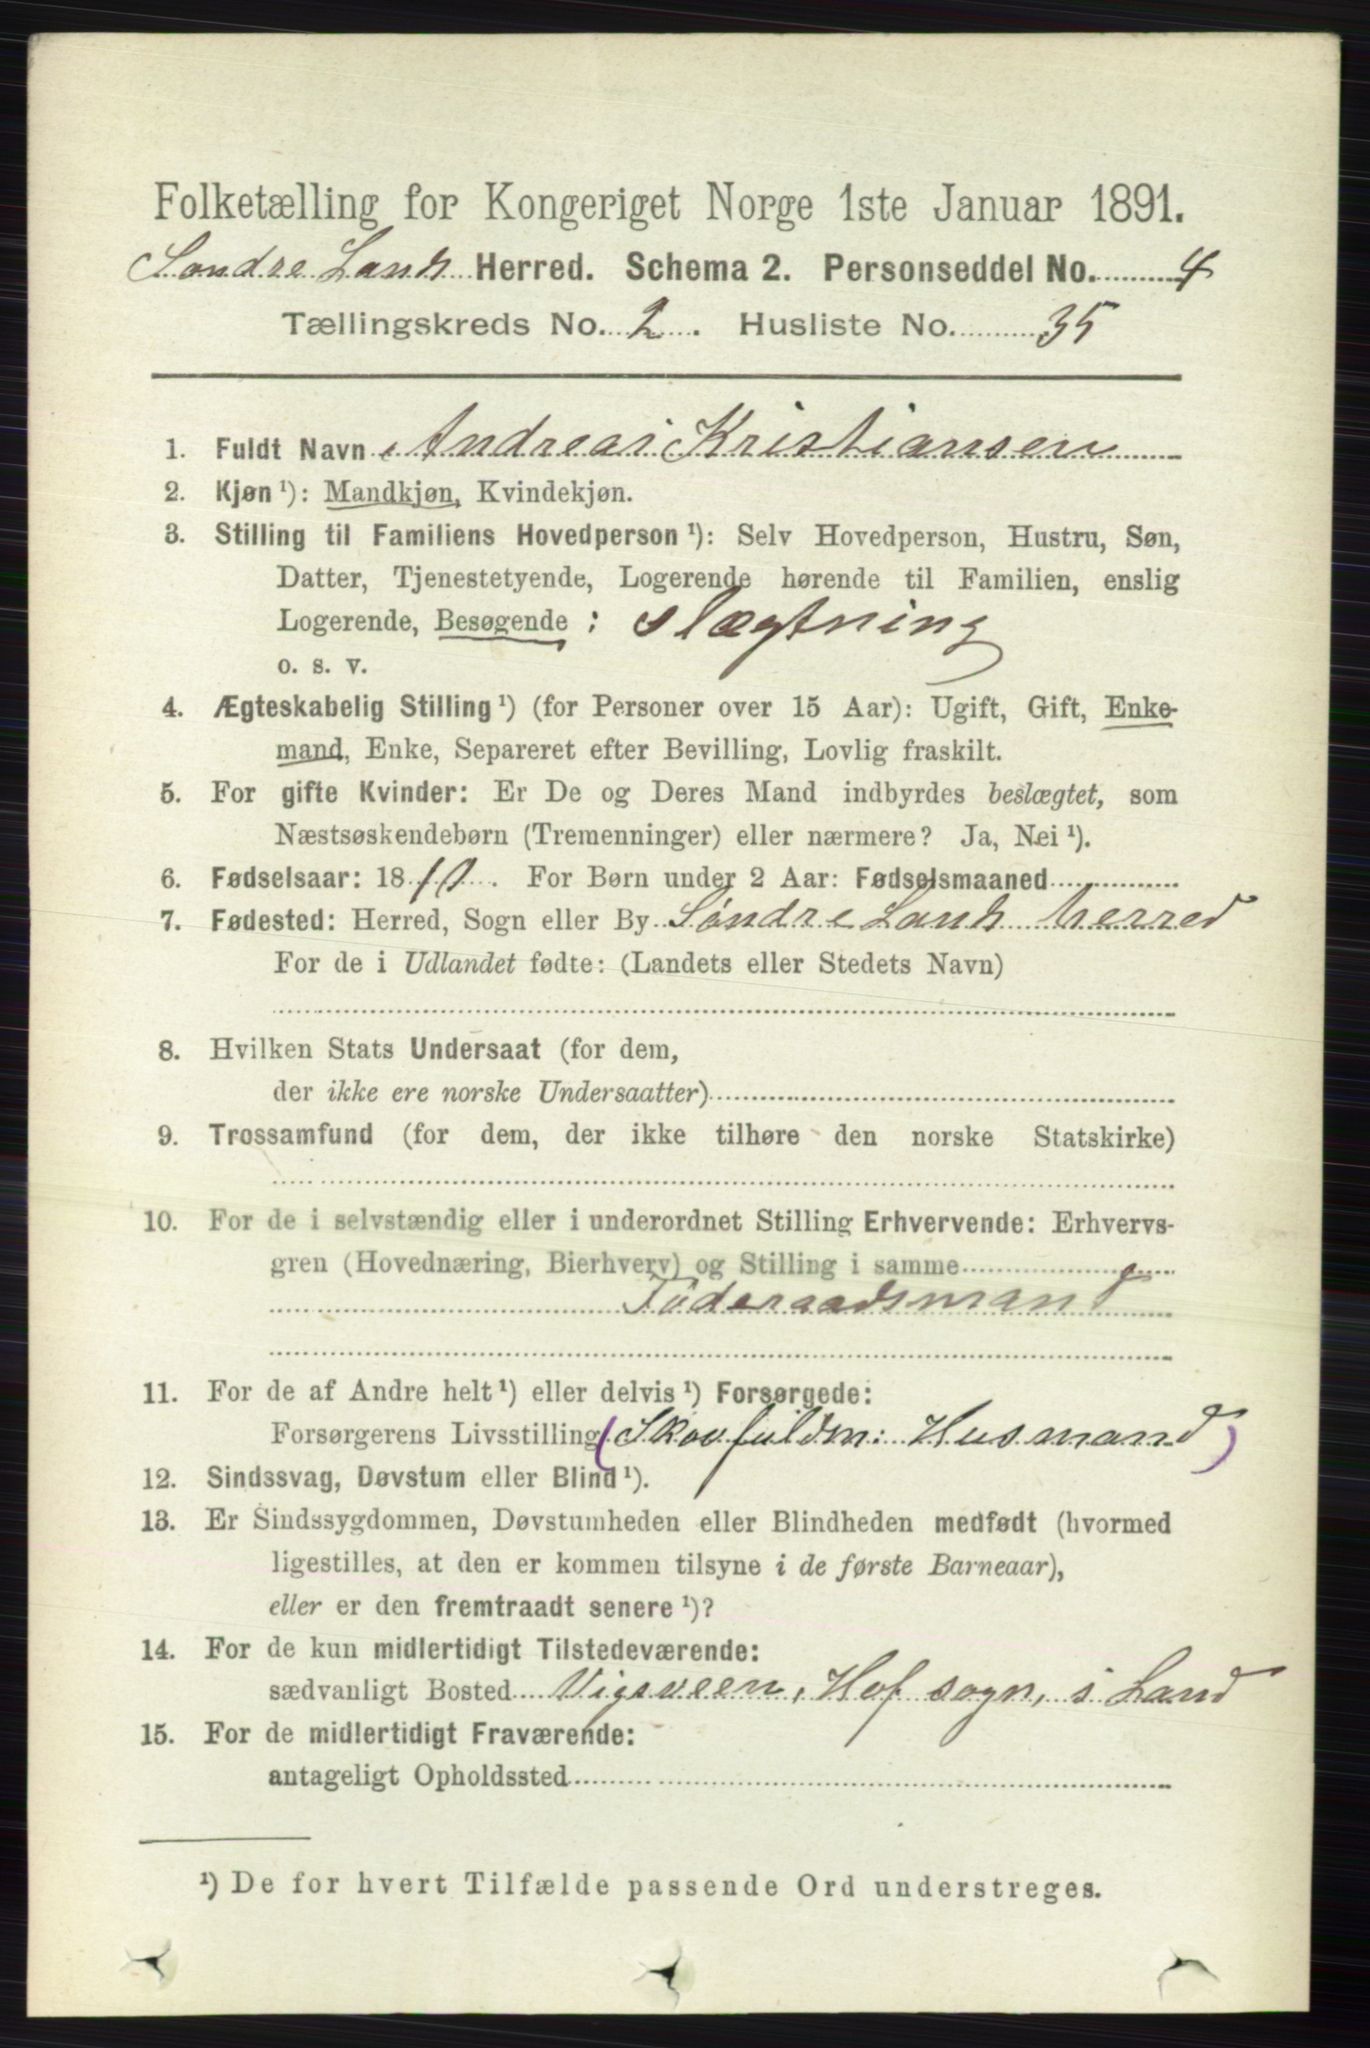 Folketælling for Kongeriget Norge 1ste Januar 1891.
Søndre Land Herred. Schema 2. Personseddel No. 4
Tællingskreds No. 2. Husliste No. 35
1. Fuldt Navn Andreas Kristiansen
2. Kjøn ¹): Mandkjøn, Kvindekjøn.
3. Stilling til Familiens Hovedperson ¹): Selv Hovedperson, Hustru, Søn,
Datter, Tjenestetyende, Logerende hørende til Familien, enslig
Logerende, Besøgende : slægtning
o. s. v.
4. Ægteskabelig Stilling ¹) (for Personer over 15 Aar): Ugift, Gift, Enke-
mand, Enke, Separeret efter Bevilling, Lovlig fraskilt.
5. For gifte Kvinder: Er De og Deres Mand indbyrdes beslægtet, som
Næstsøskendebørn (Tremenninger) eller nærmere? Ja, Nei ¹).
6. Fødselsaar: 18 . For Børn under 2 Aar: Fødselsmaaned
7. Fødested: Herred, Sogn eller By Søndre Land herred
For de i Udlandet fødte: (Landets eller Stedets Navn)
8. Hvilken Stats Undersaat (for dem,
der ikke ere norske Undersaatter)
9. Trossamfund (for dem, der ikke tilhøre den norske Statskirke)
10. For de i selvstændig eller i underordnet Stilling Erhvervende: Erhvervs-
gren (Hovednæring, Bierhverv) og Stilling i samme
Føderaadsmand
11. For de af Andre helt ¹) eller delvis ¹) Forsørgede:
Forsørgerens Livsstilling (Husmand)
12. Sindssvag, Døvstum eller Blind ¹).
13. Er Sindssygdommen, Døvstumheden eller Blindheden medfødt (hvormed
ligestilles, at den er kommen tilsyne i de første Barneaar),
eller er den fremtraadt senere ¹)?
14. For de kun midlertidigt Tilstedeværende:
sædvanligt Bosted Vigsveen, Hof sogn, i Land
15. For de midlertidigt Fraværende:
antageligt Opholdssted
¹) De for hvert Tilfælde passende Ord understreges.